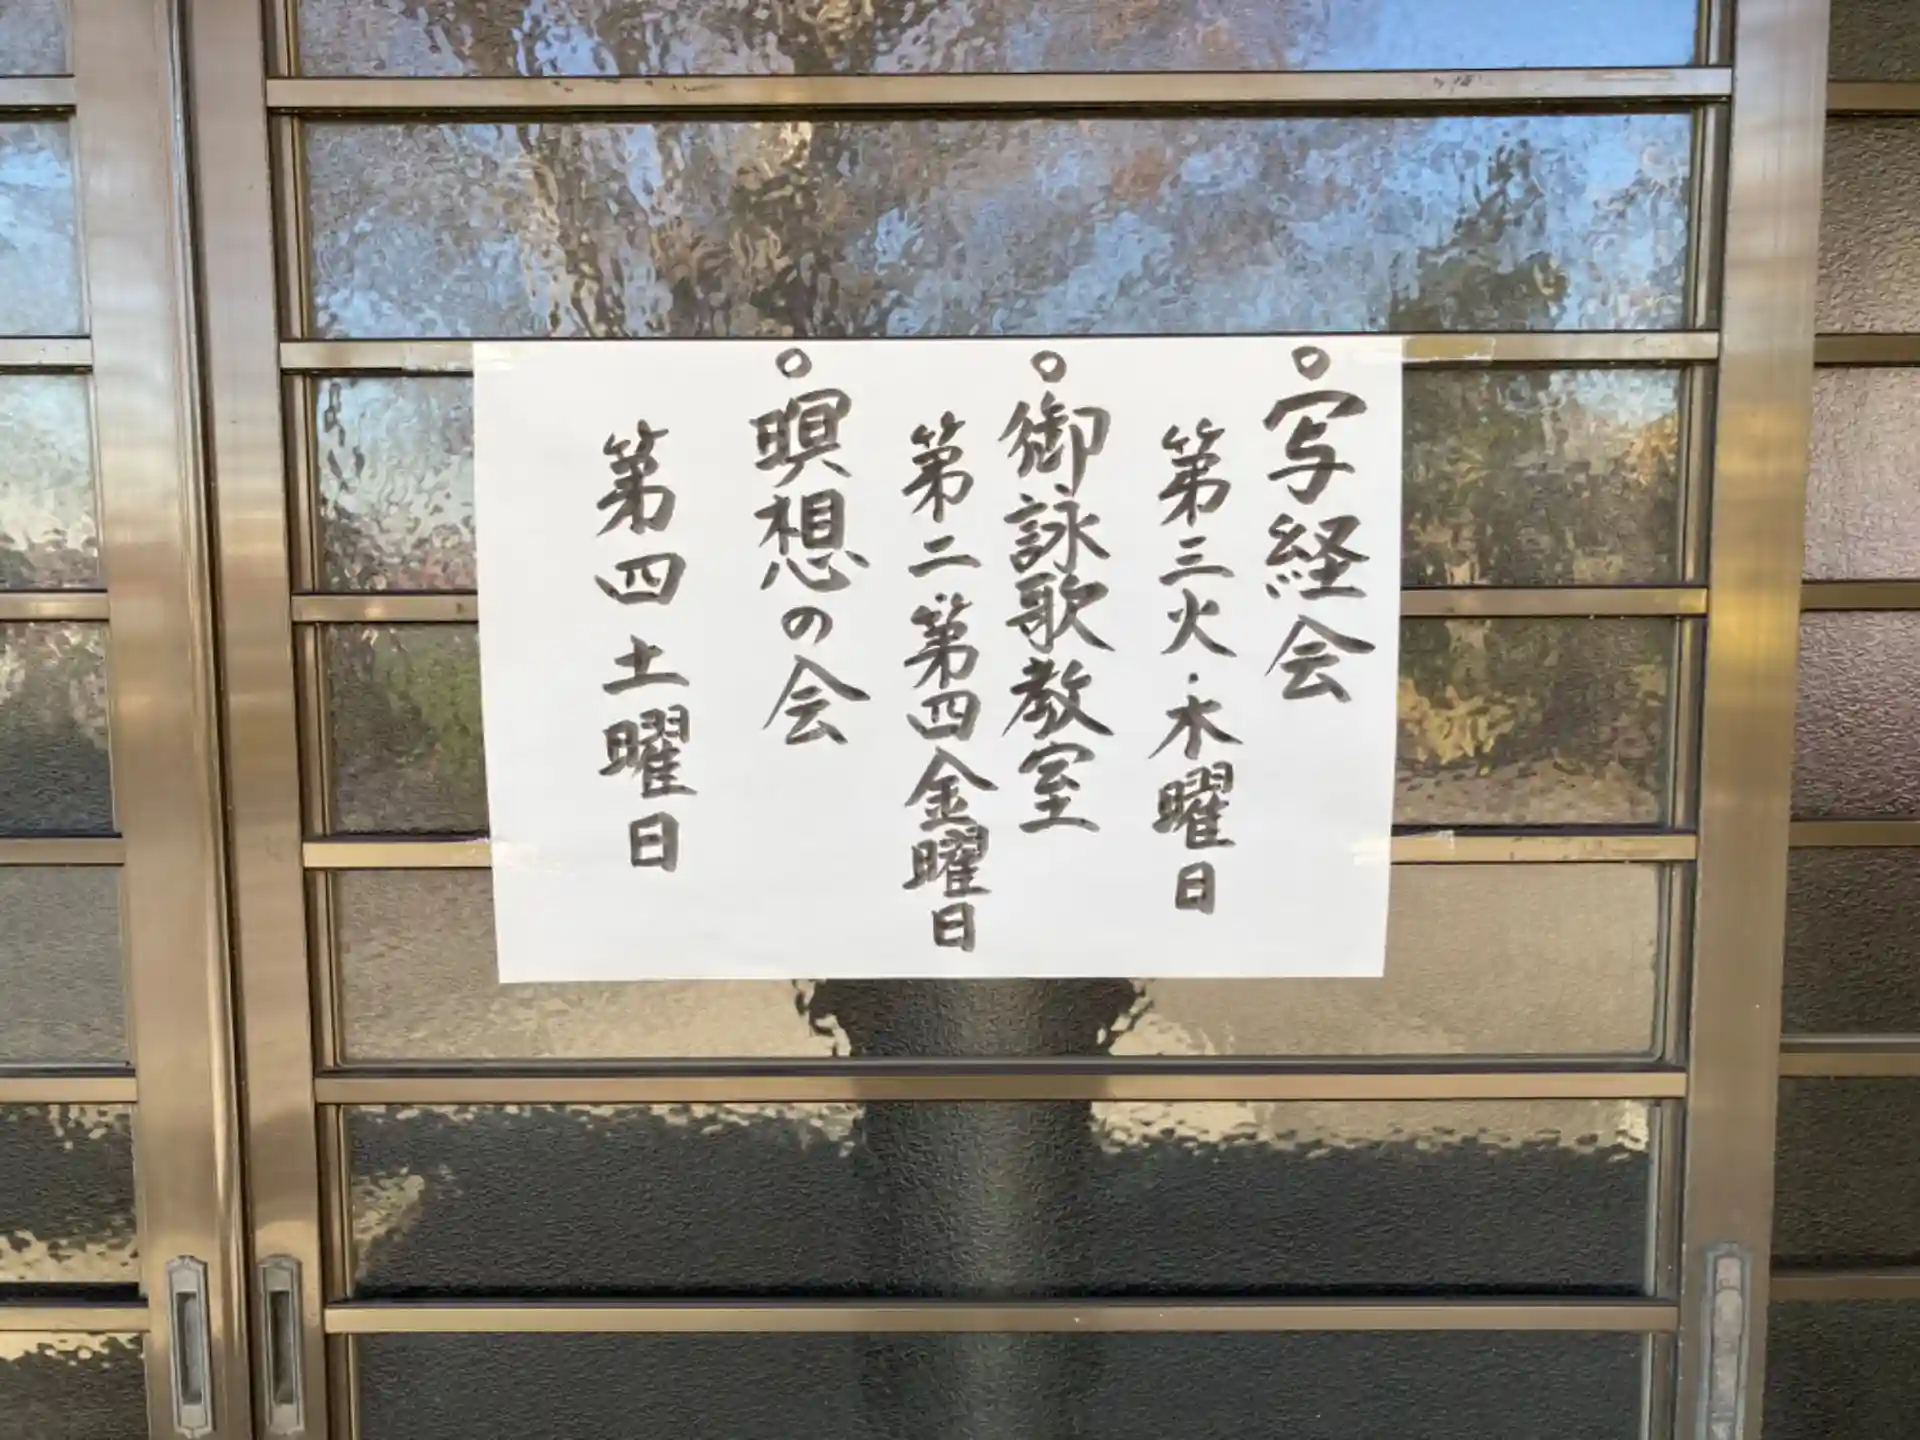 ○写経会
第三火・水曜日
○御詠歌教室
第二第四金曜日
○瞑想の会
第四土曜日